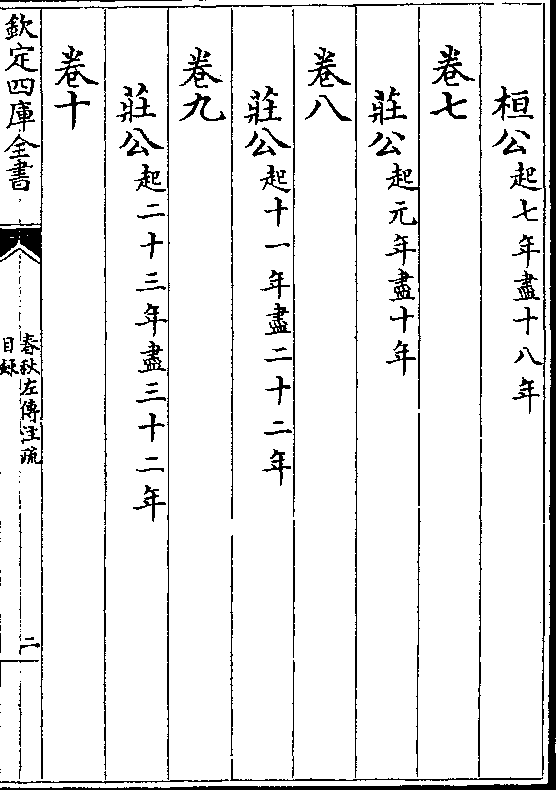 桓公起七年盡十八年
卷七
莊公起元年盡十年
卷八
莊公起十一年盡二十二年
卷九
莊公起二十三年盡三十二年
卷十
欽定四庫全書
春秋左傳注疏
目録
二